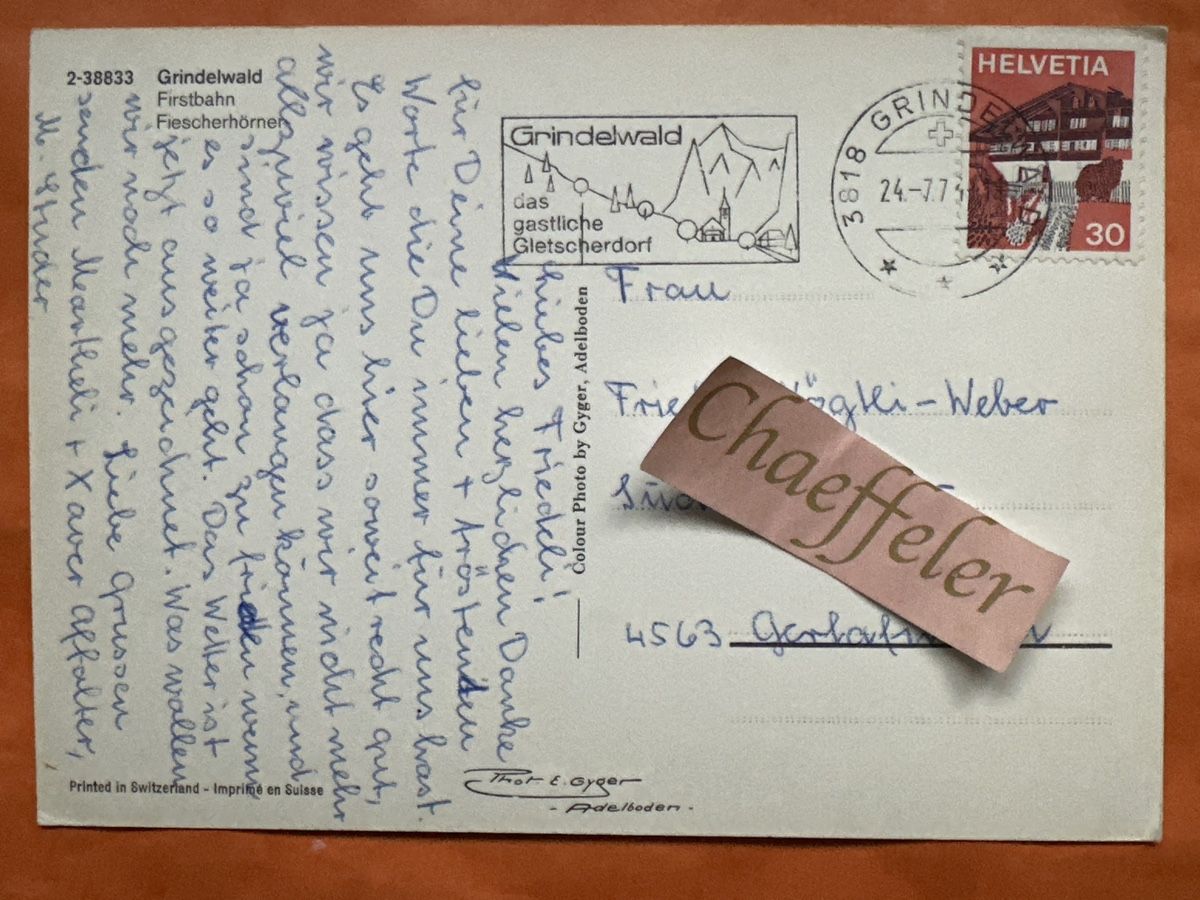 2-38833 Grindelwald
Firstbahn
Fiescherhörner
Grindelwald
das
gastliche
Gletscherdorf
3818 GRINDELWALD
24.-7.7
HELVETIA
30
Liebes Friedeli!
Vielen herzlichen Danke
für Deine lieben + tröstenden
Worte die Du immer für uns hast.
Es geht uns hier soweit recht gut,
wir wissen ja dass wir nicht mehr
allzuviel verlangen können, und
sind ja schon zu frieden wenn
es so weiter geht. Das Wetter ist
jetzt ausgezeichnet. Was wollen
wir noch mehr. Liebe Grüssen
senden Martheli + Xaver Affolter,
M. Studer
Colour Photo by Gyger, Adelboden
Frau
Frie
-Weber
Chaeffeler
4563
Printed in Switzerland - Imprimé en Suisse
Phot. E. Gyger
- Adelboden -